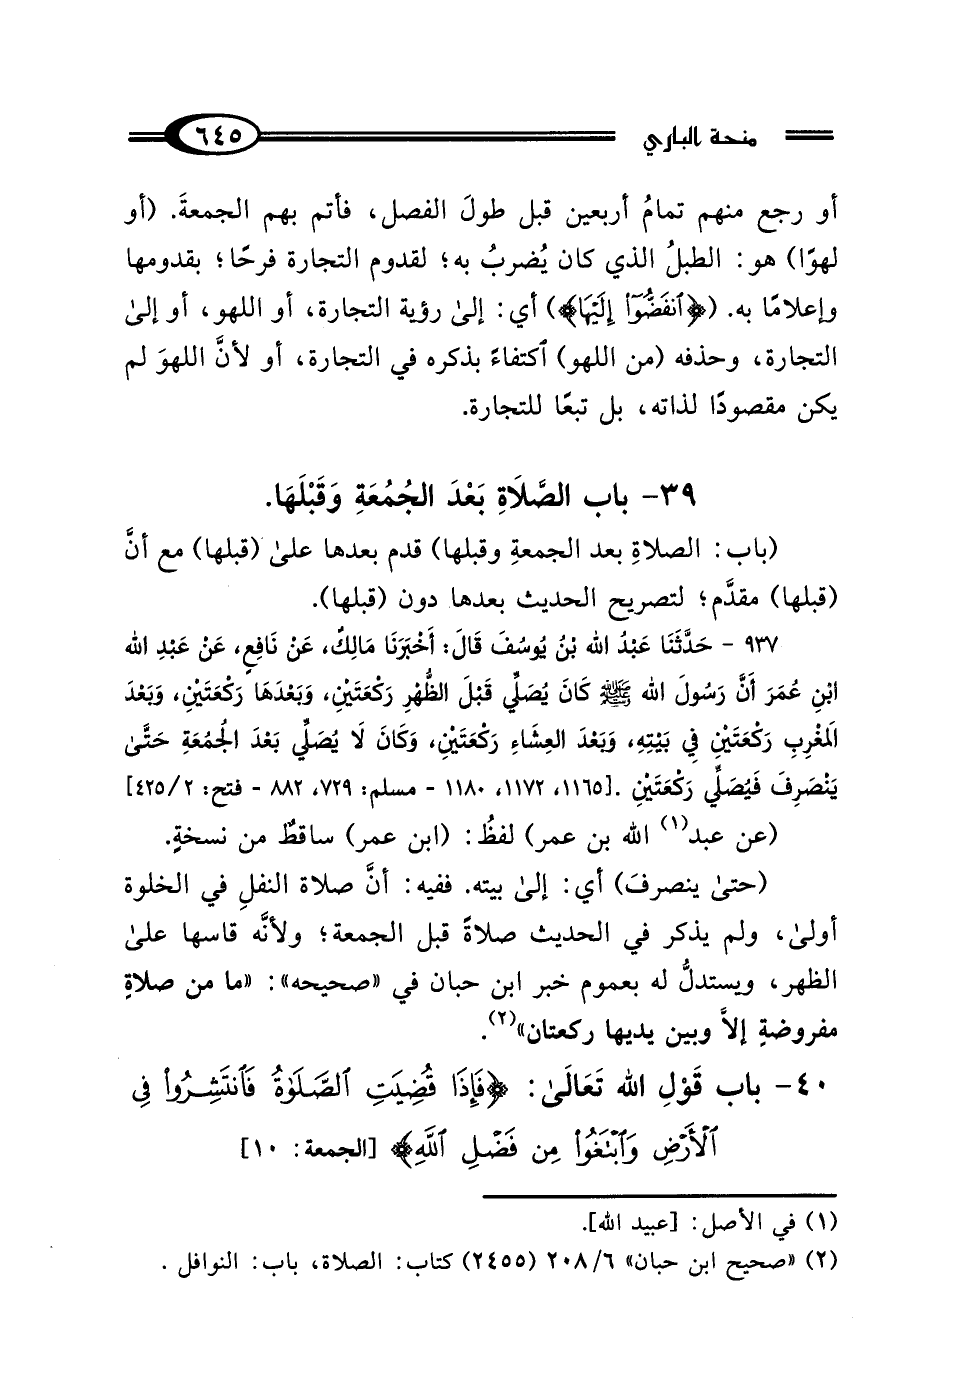 منحة الباري
٦٤٥
أو رجع منهم تمامُ أربعين قبل طولَ الفصل، فأتم بهم الجمعةَ. (أو
لهوًا) هو: الطبلُ الذي كان يُضربُ به؛ لقدوم التجارة فرحًا؛ بقدومها
وإعلامًا به. (﴿ٱنفَضُّوٓاْ إِلَيْهَا﴾) أي: إلىٰ رؤية التجارة، أو اللهو، أو إلىٰ
التجارة، وحذفه (من اللهو) ٱكتفاءً بذكره في التجارة، أو لأنَّ اللهوَ لم
يكن مقصودًا لذاته، بل تبعًا للتجارة.
٣٩- باب الصَّلَاةِ بَعْدَ الجُمُعَةِ وَقَبْلَهَا.
(باب: الصلاةِ بعد الجمعةِ وقبلها) قدم بعدها علىٰ (قبلها) مع أنَّ
(قبلها) مقدَّم؛ لتصريح الحديث بعدها دون (قبلها).
٩٣٧ - حَدَّثَنَا عَبْدُ الله بْنُ يُوسُفَ قَالَ: أَخْبَرَنَا مَالِكٌ، عَنْ نَافِعٍ، عَنْ عَبْدِ الله
ابْنِ عُمَرَ أَنَّ رَسُولَ الله ﷺ كَانَ يُصَلِّي قَبْلَ الظُّهْرِ رَكْعَتَيْنِ، وَبَعْدَهَا رَكْعَتَيْنِ، وَبَعْدَ
المَغْرِبِ رَكْعَتَيْنِ فِي بَيْتِهِ، وَبَعْدَ العِشَاءِ رَكْعَتَيْنِ، وَكَانَ لَا يُصَلِّي بَعْدَ الجُمُعَةِ حَتَّىٰ
يَنْصَرِفَ فَيُصَلِّي رَكْعَتَيْنِ .[١١٦٥، ١١٧٢، ١١٨٠ - مسلم: ٧٢٩، ٨٨٢ - فتح: ٤٢٥/٢]
(عن عبد(١) الله بن عمر) لفظُ: (ابن عمر) ساقطٌ من نسخةٍ.
(حتىٰ ينصرفَ) أي: إلىٰ بيته. ففيه: أنَّ صلاة النفلِ في الخلوة
أولىٰ، ولم يذكر في الحديث صلاةً قبل الجمعة؛ ولأنَّه قاسها علىٰ
الظهر، ويستدلُّ له بعموم خبر ابن حبان في «صحيحه»: «ما من صلاةٍ
مفروضةٍ إلاَّ وبين يديها ركعتان»(٢).
٤٠- باب قَوْلِ الله تَعَالَىٰ: ﴿فَإِذَا قُضِيَتِ ٱلصَّلَوٰةُ فَٱنتَشِرُواْ فِى
ٱلْأَرْضِ وَٱبْتَغُواْ مِن فَضْلِ ٱللَّهِ﴾ [الجمعة: ١٠]
(١) في الأصل: [عبيد الله].
(٢) «صحيح ابن حبان» ٢٠٨/٦ (٢٤٥٥) كتاب: الصلاة، باب: النوافل .